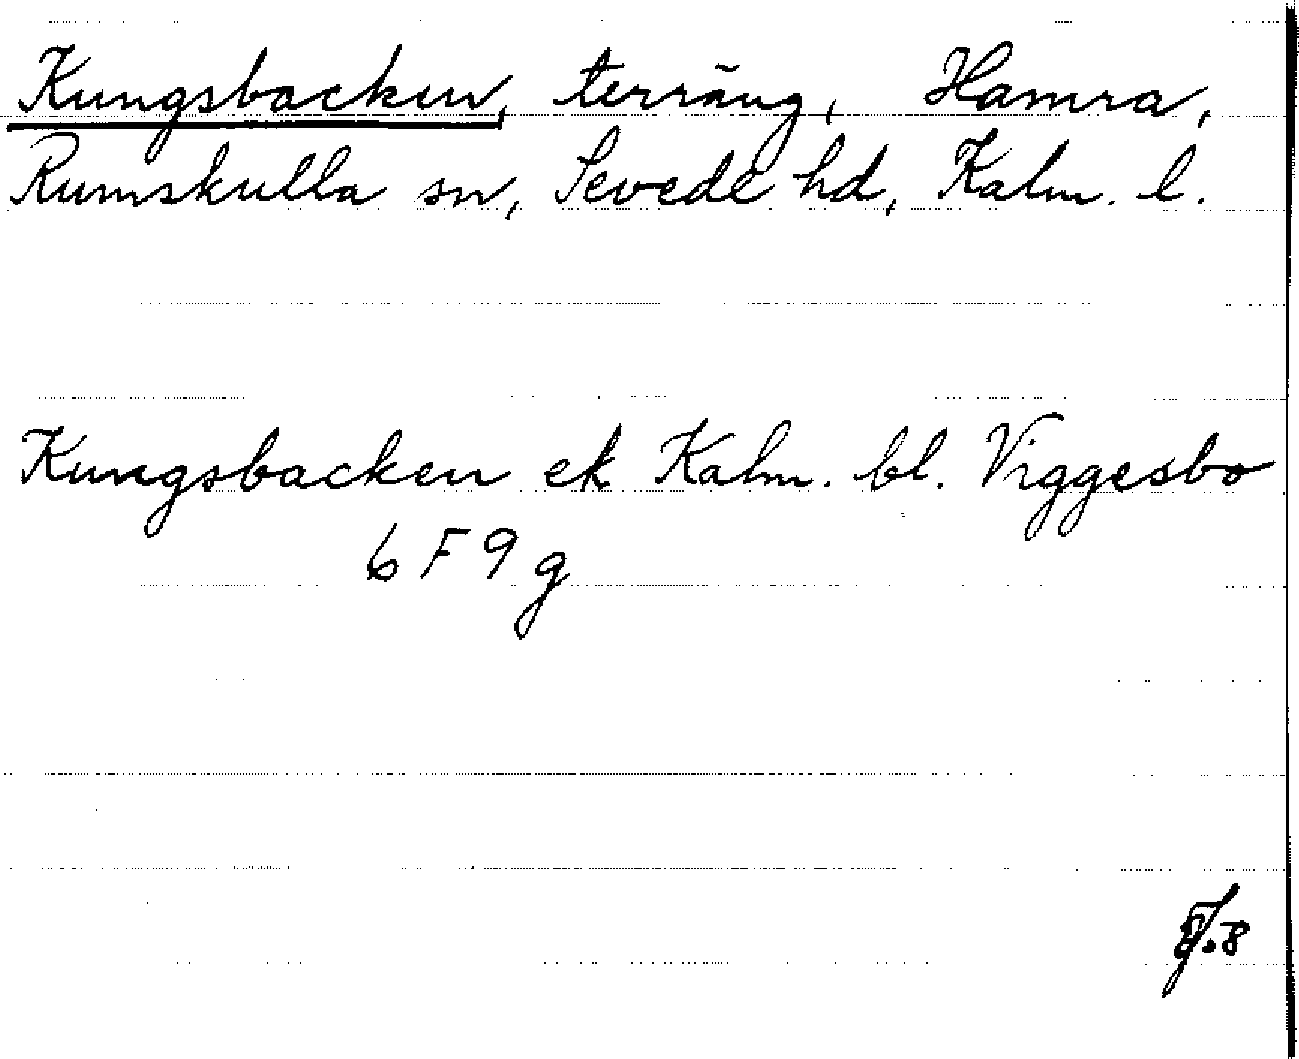 Kungsbacken, terräng, Hamra,
Rumskulla sn, Sevede hd, Kalm. l.
Kungsbacken ek Kalm. bl. Viggesbo
6 F 9 g